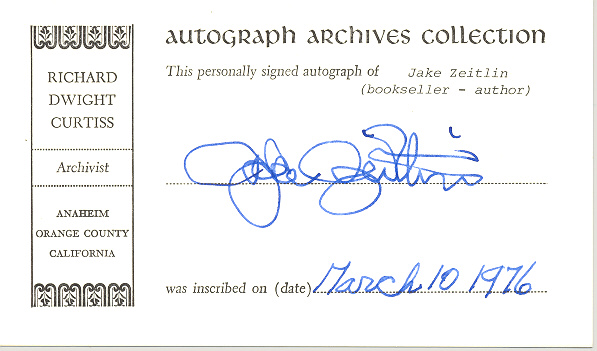 AUTOGRAPH ARCHIVES COLLECTION
This personally signed autograph of Jake Zeitlin
(bookseller - author)
RICHARD
DWIGHT
CURTISS
Archivist
ANAHEIM
ORANGE COUNTY
CALIFORNIA
Jake Zeitlin
was inscribed on (date) March 10 1976